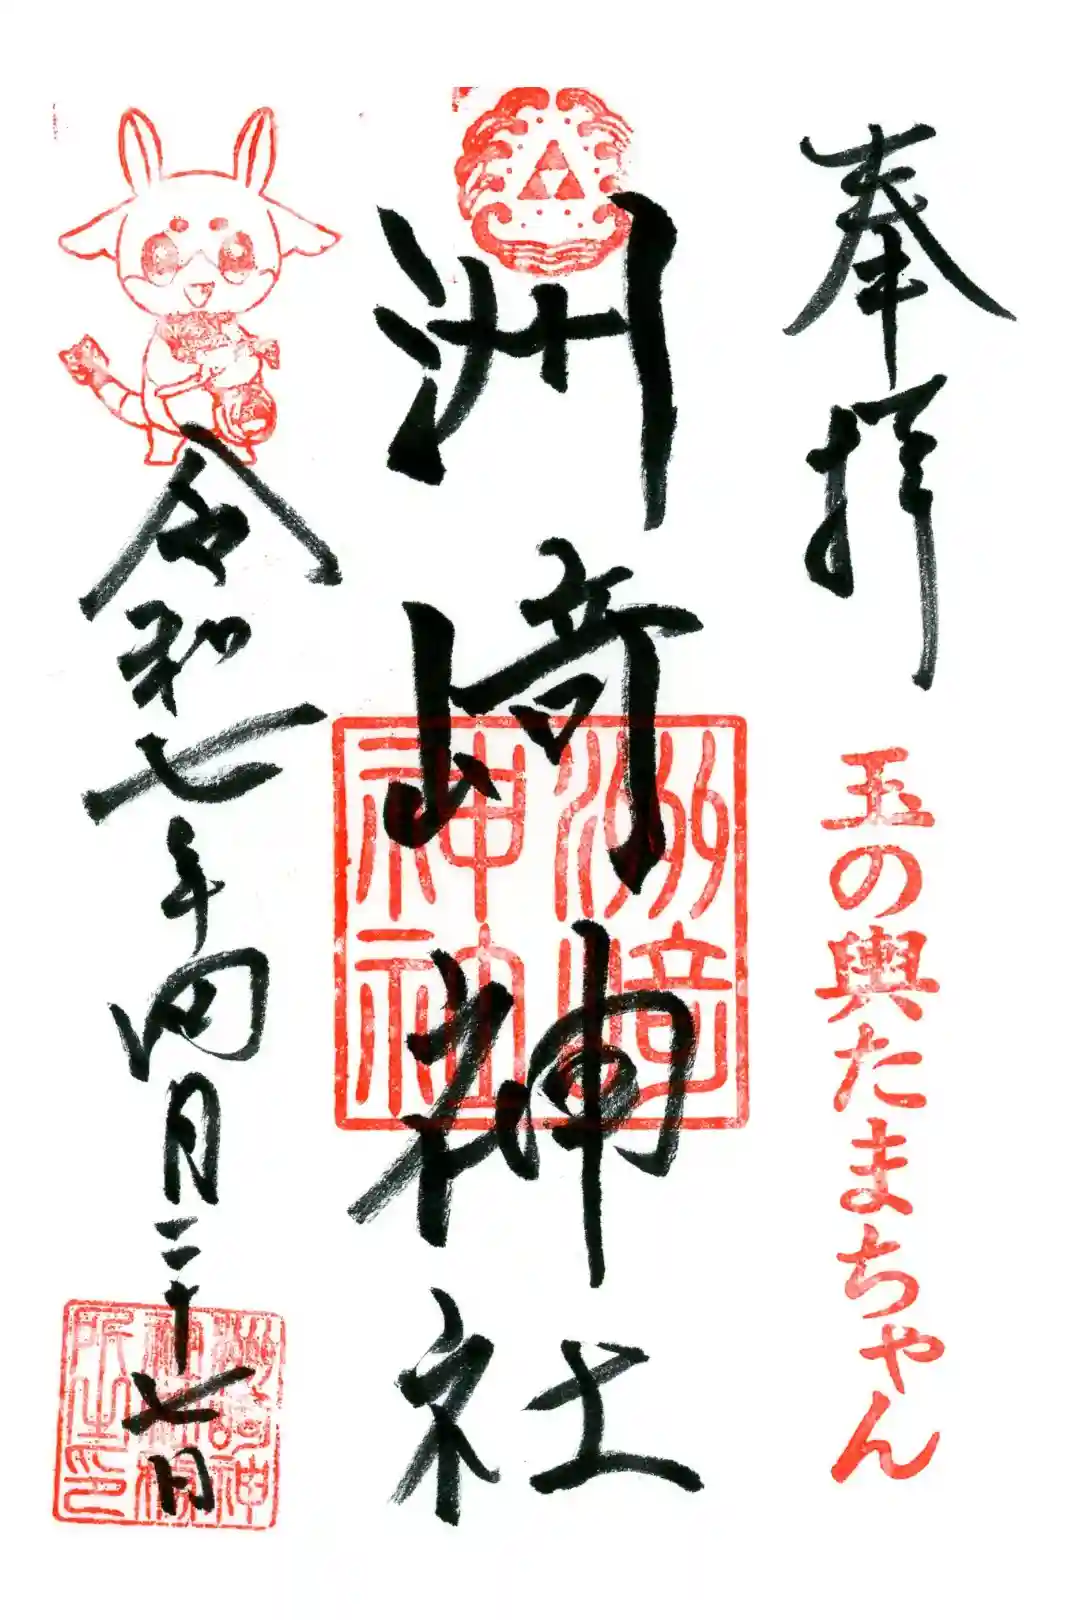 奉拝
玉の輿たまちゃん
洲崎神社
洲崎神社
令和七年四月二十七日
洲崎神社社務所之印